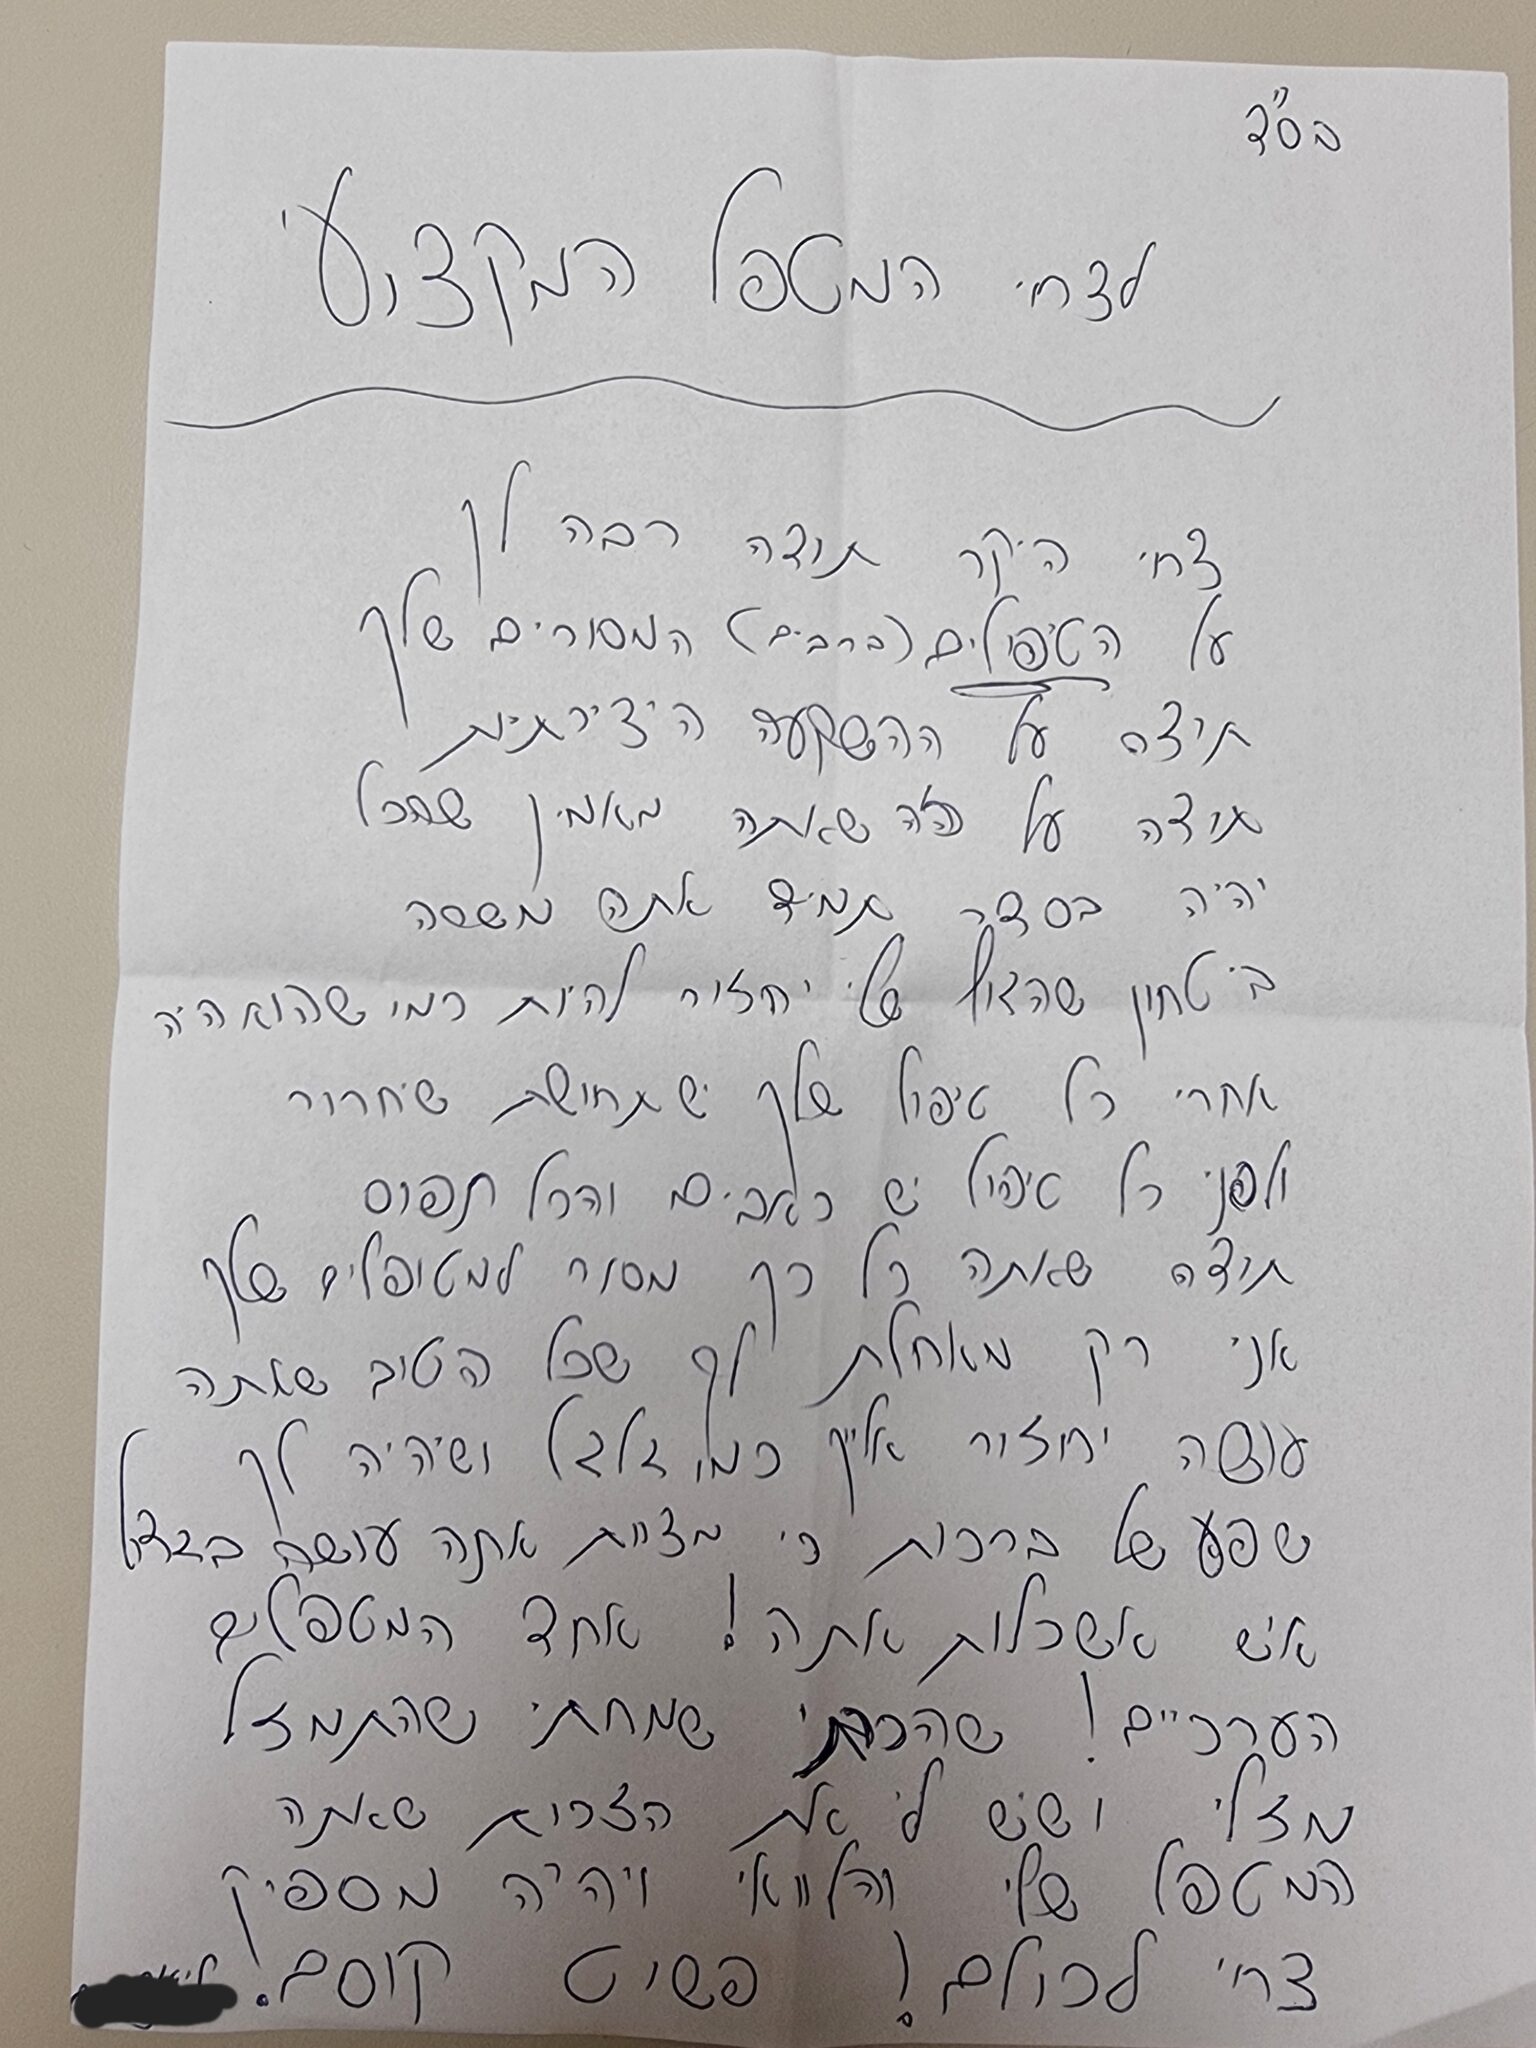 בס"ד
לצחי המטפל המקצועי
צחי היקר תודה רבה לך
על הטיפולים (ברבים) המסורים שלך
תודה על ההשקעה היצירתיות
תודה על הזה שאתה מאמין שהכל
יהיה בסדר תמיד אתה משסה
ביטחון שהגוף שלי יחזור להיות כמו שהוא היה
אחרי כל טיפול שלך יש תחושת שיחרור
ולפני כל טיפול יש כאבים והכל תפוס
תודה שאתה כל כך מסור למטופלים שלך
אני רק מאחלת לך שכל הטוב שאתה
עושה יחזור אלייך כמו גלגל ושיהיה לך
שפע של ברכות כי מצוות אתה עושה בגדול
איש אשכולות אתה! אחד המטפלים
הערכיים! שהכרתי שמחתי שהתמזל
מזלי ושיש לי את הזכות שאתה
המטפל שלי והלוואי ויהיה מספיק
צחי לכולם! פשוט קוסם!